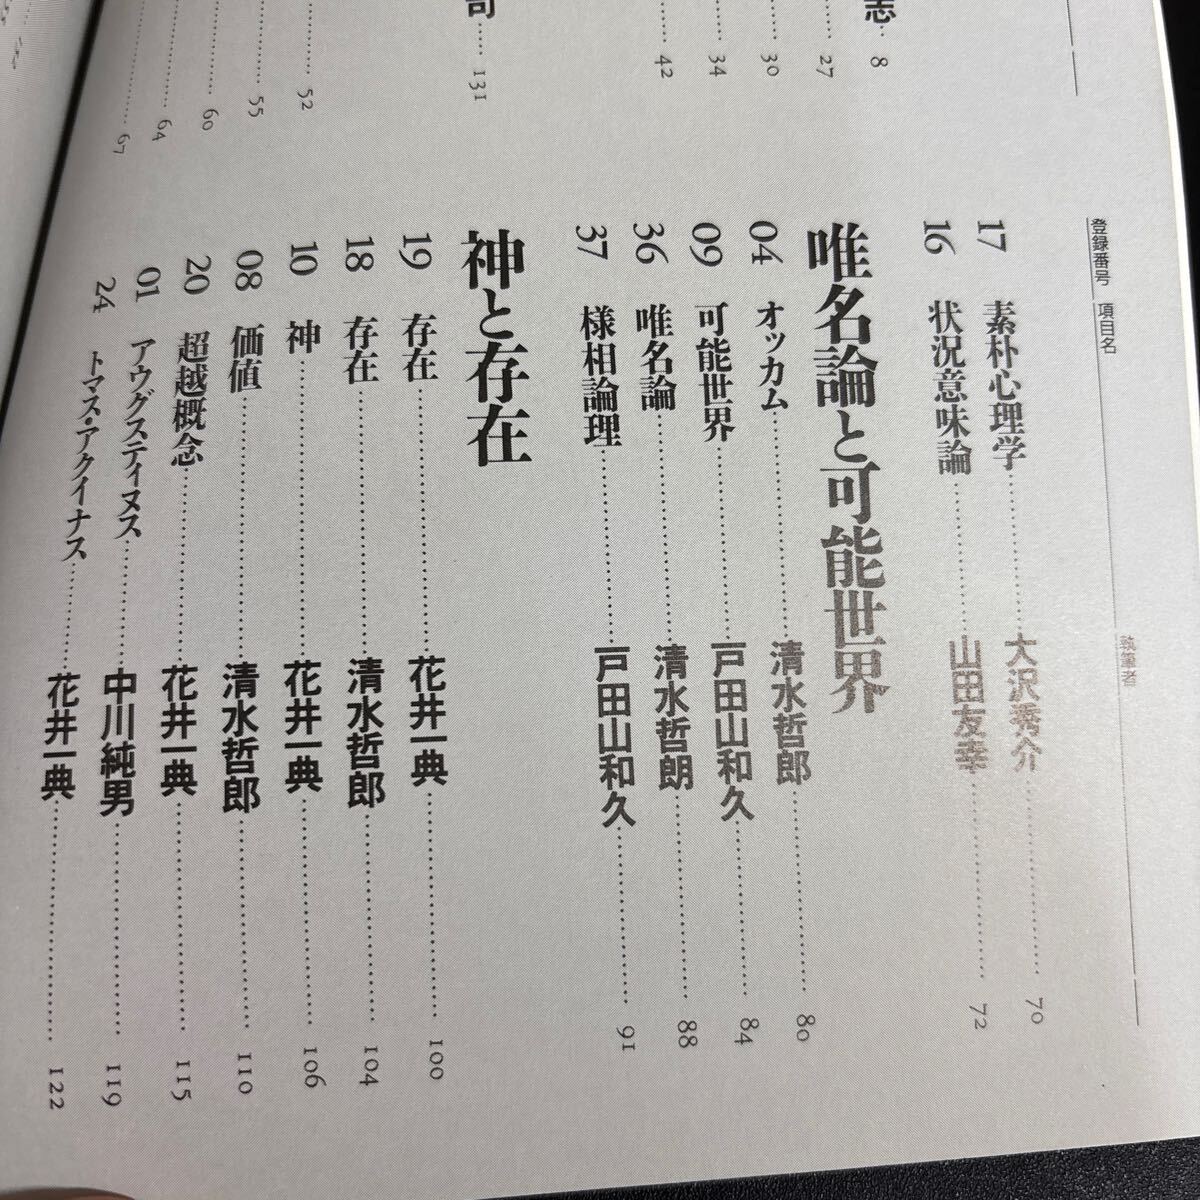 志 8
27
30
34
42
司 131
52
55
60
64
67
登録番号 項目名 執筆者
17 素朴心理学 大沢秀介 70
16 状況意味論 山田友幸 72
唯名論と可能世界
04 オッカム 清水哲郎 80
09 可能世界 戸田山和久 84
36 唯名論 清水哲朗 88
37 様相論理 戸田山和久 91
神と存在
19 存在 花井一典 100
18 存在 清水哲郎 104
10 神 花井一典 106
08 価値 清水哲郎 110
20 超越概念 花井一典 115
01 アウグスティヌス 中川純男 119
24 トマス・アクィナス 花井一典 122